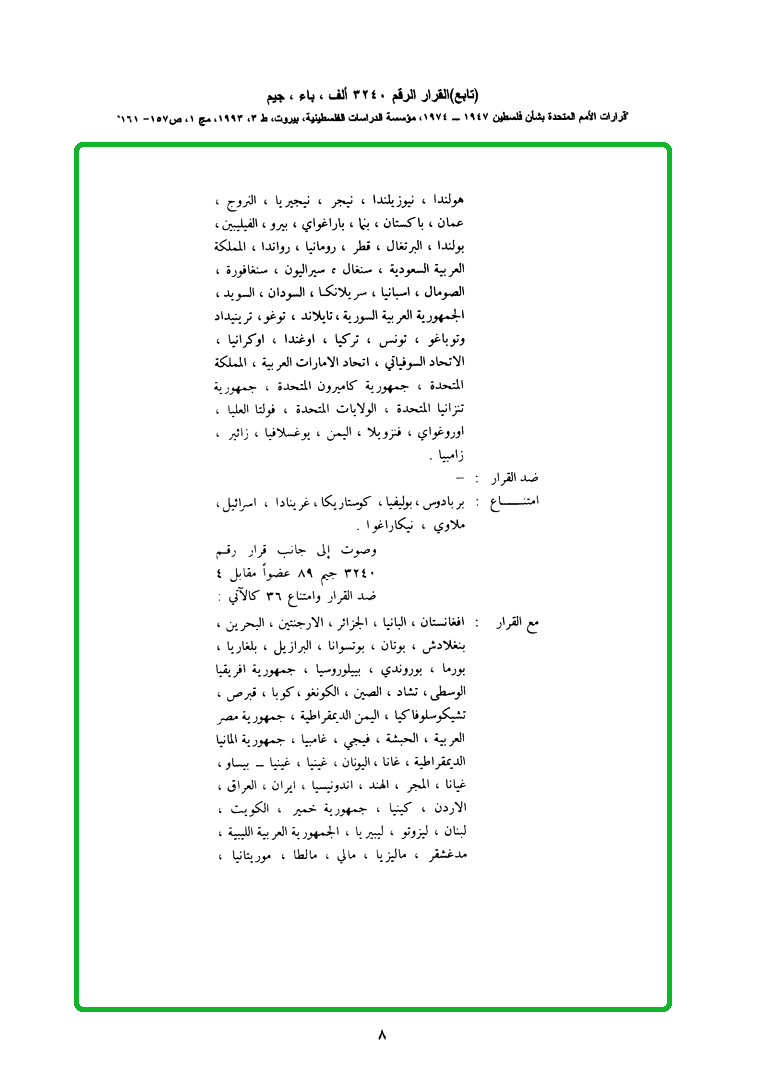 (تابع)القرار الرقم ٣٢٤٠ ألف ، باء ، جيم
"قرارات الأمم المتحدة بشأن فلسطين ١٩٤٧ ــ ١٩٧٤، مؤسسة الدراسات الفلسطينية، بيروت، ط ٣، ١٩٩٣، مج ١، ص١٥٧- ١٦١"
هولندا ، نيوزيلندا ، نيجر ، نيجيريا ، النروج ،
عمان ، باكستان ، بنما ، باراغواي ، بيرو ، الفيليبين ،
بولندا ، البرتغال ، قطر ، رومانيا ، رواندا ، المملكة
العربية السعودية ، سنغال ، سيراليون ، سنغافورة ،
الصومال ، اسبانيا ، سريلانكا ، السودان ، السويد ،
الجمهورية العربية السورية ، تايلاند ، توغو ، ترينيداد
وتوباغو ، تونس ، تركيا ، اوغندا ، اوكرانيا ،
الاتحاد السوفياتي ، اتحاد الامارات العربية ، المملكة
المتحدة ، جمهورية كاميرون المتحدة ، جمهورية
تنزانيا المتحدة ، الولايات المتحدة ، فولتا العليا ،
اوروغواي ، فنزويلا ، اليمن ، يوغسلافيا ، زائير ،
زامبيا .
ضد القرار : –
امتنــــــاع : بربادوس ، بوليفيا ، كوستاريكا ، غرينادا ، اسرائيل ،
ملاوي ، نيكاراغوا .
وصوت إلى جانب قرار رقم
٣٢٤٠ جيم ٨٩ عضواً مقابل ٤
ضد القرار وامتناع ٣٦ كالآتي :
مع القرار : افغانستان ، البانيا ، الجزائر ، الارجنتين ، البحرين ،
بنغلادش ، بوتان ، بوتسوانا ، البرازيل ، بلغاريا ،
بورما ، بوروندي ، بييلوروسيا ، جمهورية افريقيا
الوسطى ، تشاد ، الصين ، الكونغو ، كوبا ، قبرص ،
تشيكوسلوفاكيا ، اليمن الديمقراطية ، جمهورية مصر
العربية ، الحبشة ، فيجي ، غامبيا ، جمهورية المانيا
الديمقراطية ، غانا ، اليونان ، غينيا ، غينيا ــ بيساو ،
غيانا ، المجر ، الهند ، اندونيسيا ، ايران ، العراق ،
الاردن ، كينيا ، جمهورية خمير ، الكويت ،
لبنان ، ليزوتو ، ليبيريا ، الجمهورية العربية الليبية ،
مدغشقر ، ماليزيا ، مالي ، مالطا ، موريتانيا ،
٨